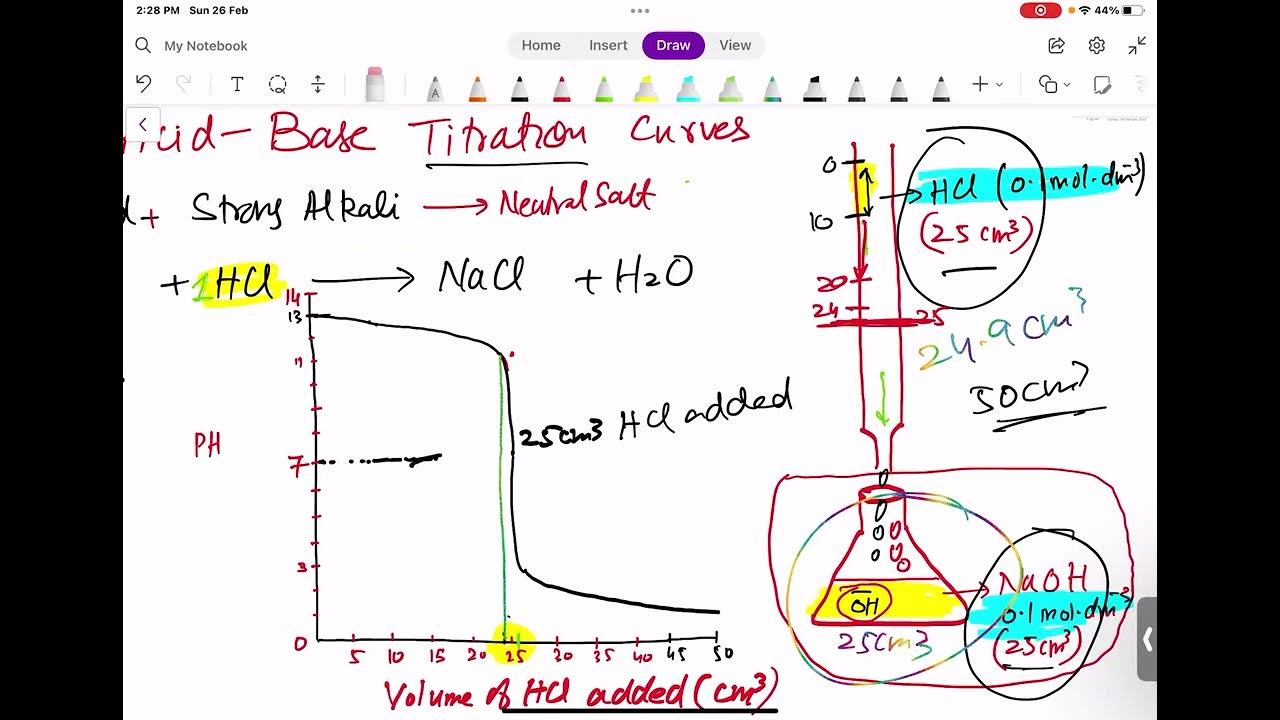 2:28 PM Sun 26 Feb
44%
My Notebook
Home Insert Draw View
Acid-Base Titration Curves
+ Strong Alkali → Neutral Salt
+ 1HCl → NaCl + H2O
14
13
11
PH
7
3
0
5 10 15 20 25 30 35 40 45 50
Volume of HCl added (cm³)
25cm3 HCl added
0
10
20
24
25
HCl (0.1mol.dm-3)
(25 cm3)
24.9cm3
50cm3
OH
25cm3
NaOH
0.1mol.dm-3
(25cm3)